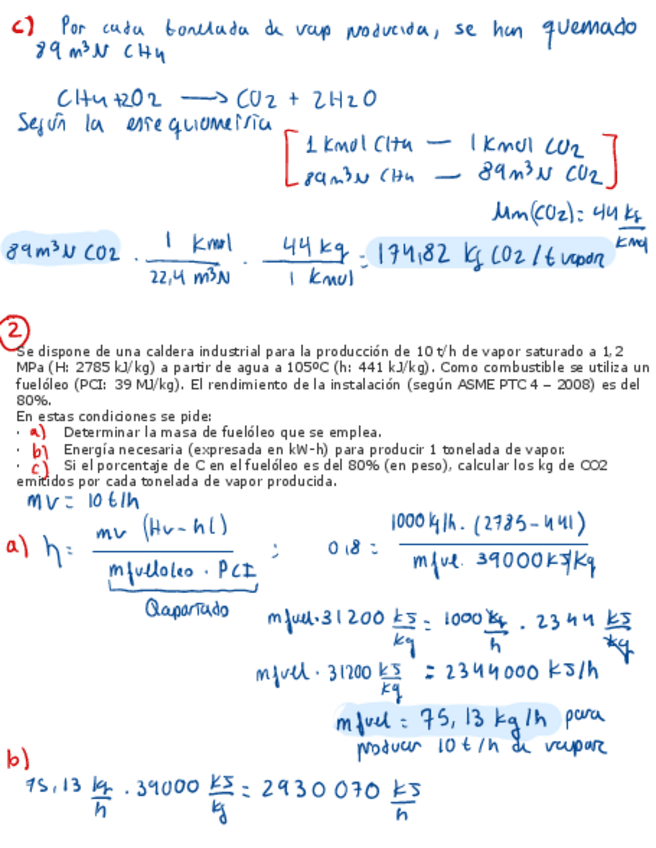 c) Por cada tonelada de vap producida, se han quemado
89 m³N CH4
CH4 + 2O2 → CO2 + 2H2O
Según la estequiometría
1 Kmol CH4 — 1 Kmol CO2
89 m³N CH4 — 89 m³N CO2
Mm(CO2): 44 kg/Kmol
89 m³N CO2 · 1 Kmol / 22,4 m³N · 44 kg / 1 Kmol = 174,82 kg CO2 / t vapor
2
Se dispone de una caldera industrial para la producción de 10 t/h de vapor saturado a 1,2
MPa (H: 2785 kJ/kg) a partir de agua a 105ºC (h: 441 kJ/kg). Como combustible se utiliza un
fuelóleo (PCI: 39 MJ/kg). El rendimiento de la instalación (según ASME PTC 4 – 2008) es del
80%.
En estas condiciones se pide:
· a) Determinar la masa de fuelóleo que se emplea.
· b) Energía necesaria (expresada en kW-h) para producir 1 tonelada de vapor.
· c) Si el porcentaje de C en el fuelóleo es del 80% (en peso), calcular los kg de CO2
emitidos por cada tonelada de vapor producida.
mv = 10 t/h
a) η = mv (Hv - hl) / mfuelóleo · PCI ; 0,8 = 1000 kg/h · (2785 - 441) / mfuel · 39000 kJ/kg
Qaportado
mfuel · 31200 kJ/kg = 1000 kg/h · 2344 kJ/kg
mfuel · 31200 kJ/kg = 2344000 kJ/h
mfuel = 75,13 kg/h para
producir 10 t/h de vapor
b)
75,13 kg/h · 39000 kJ/kg = 2930070 kJ/h